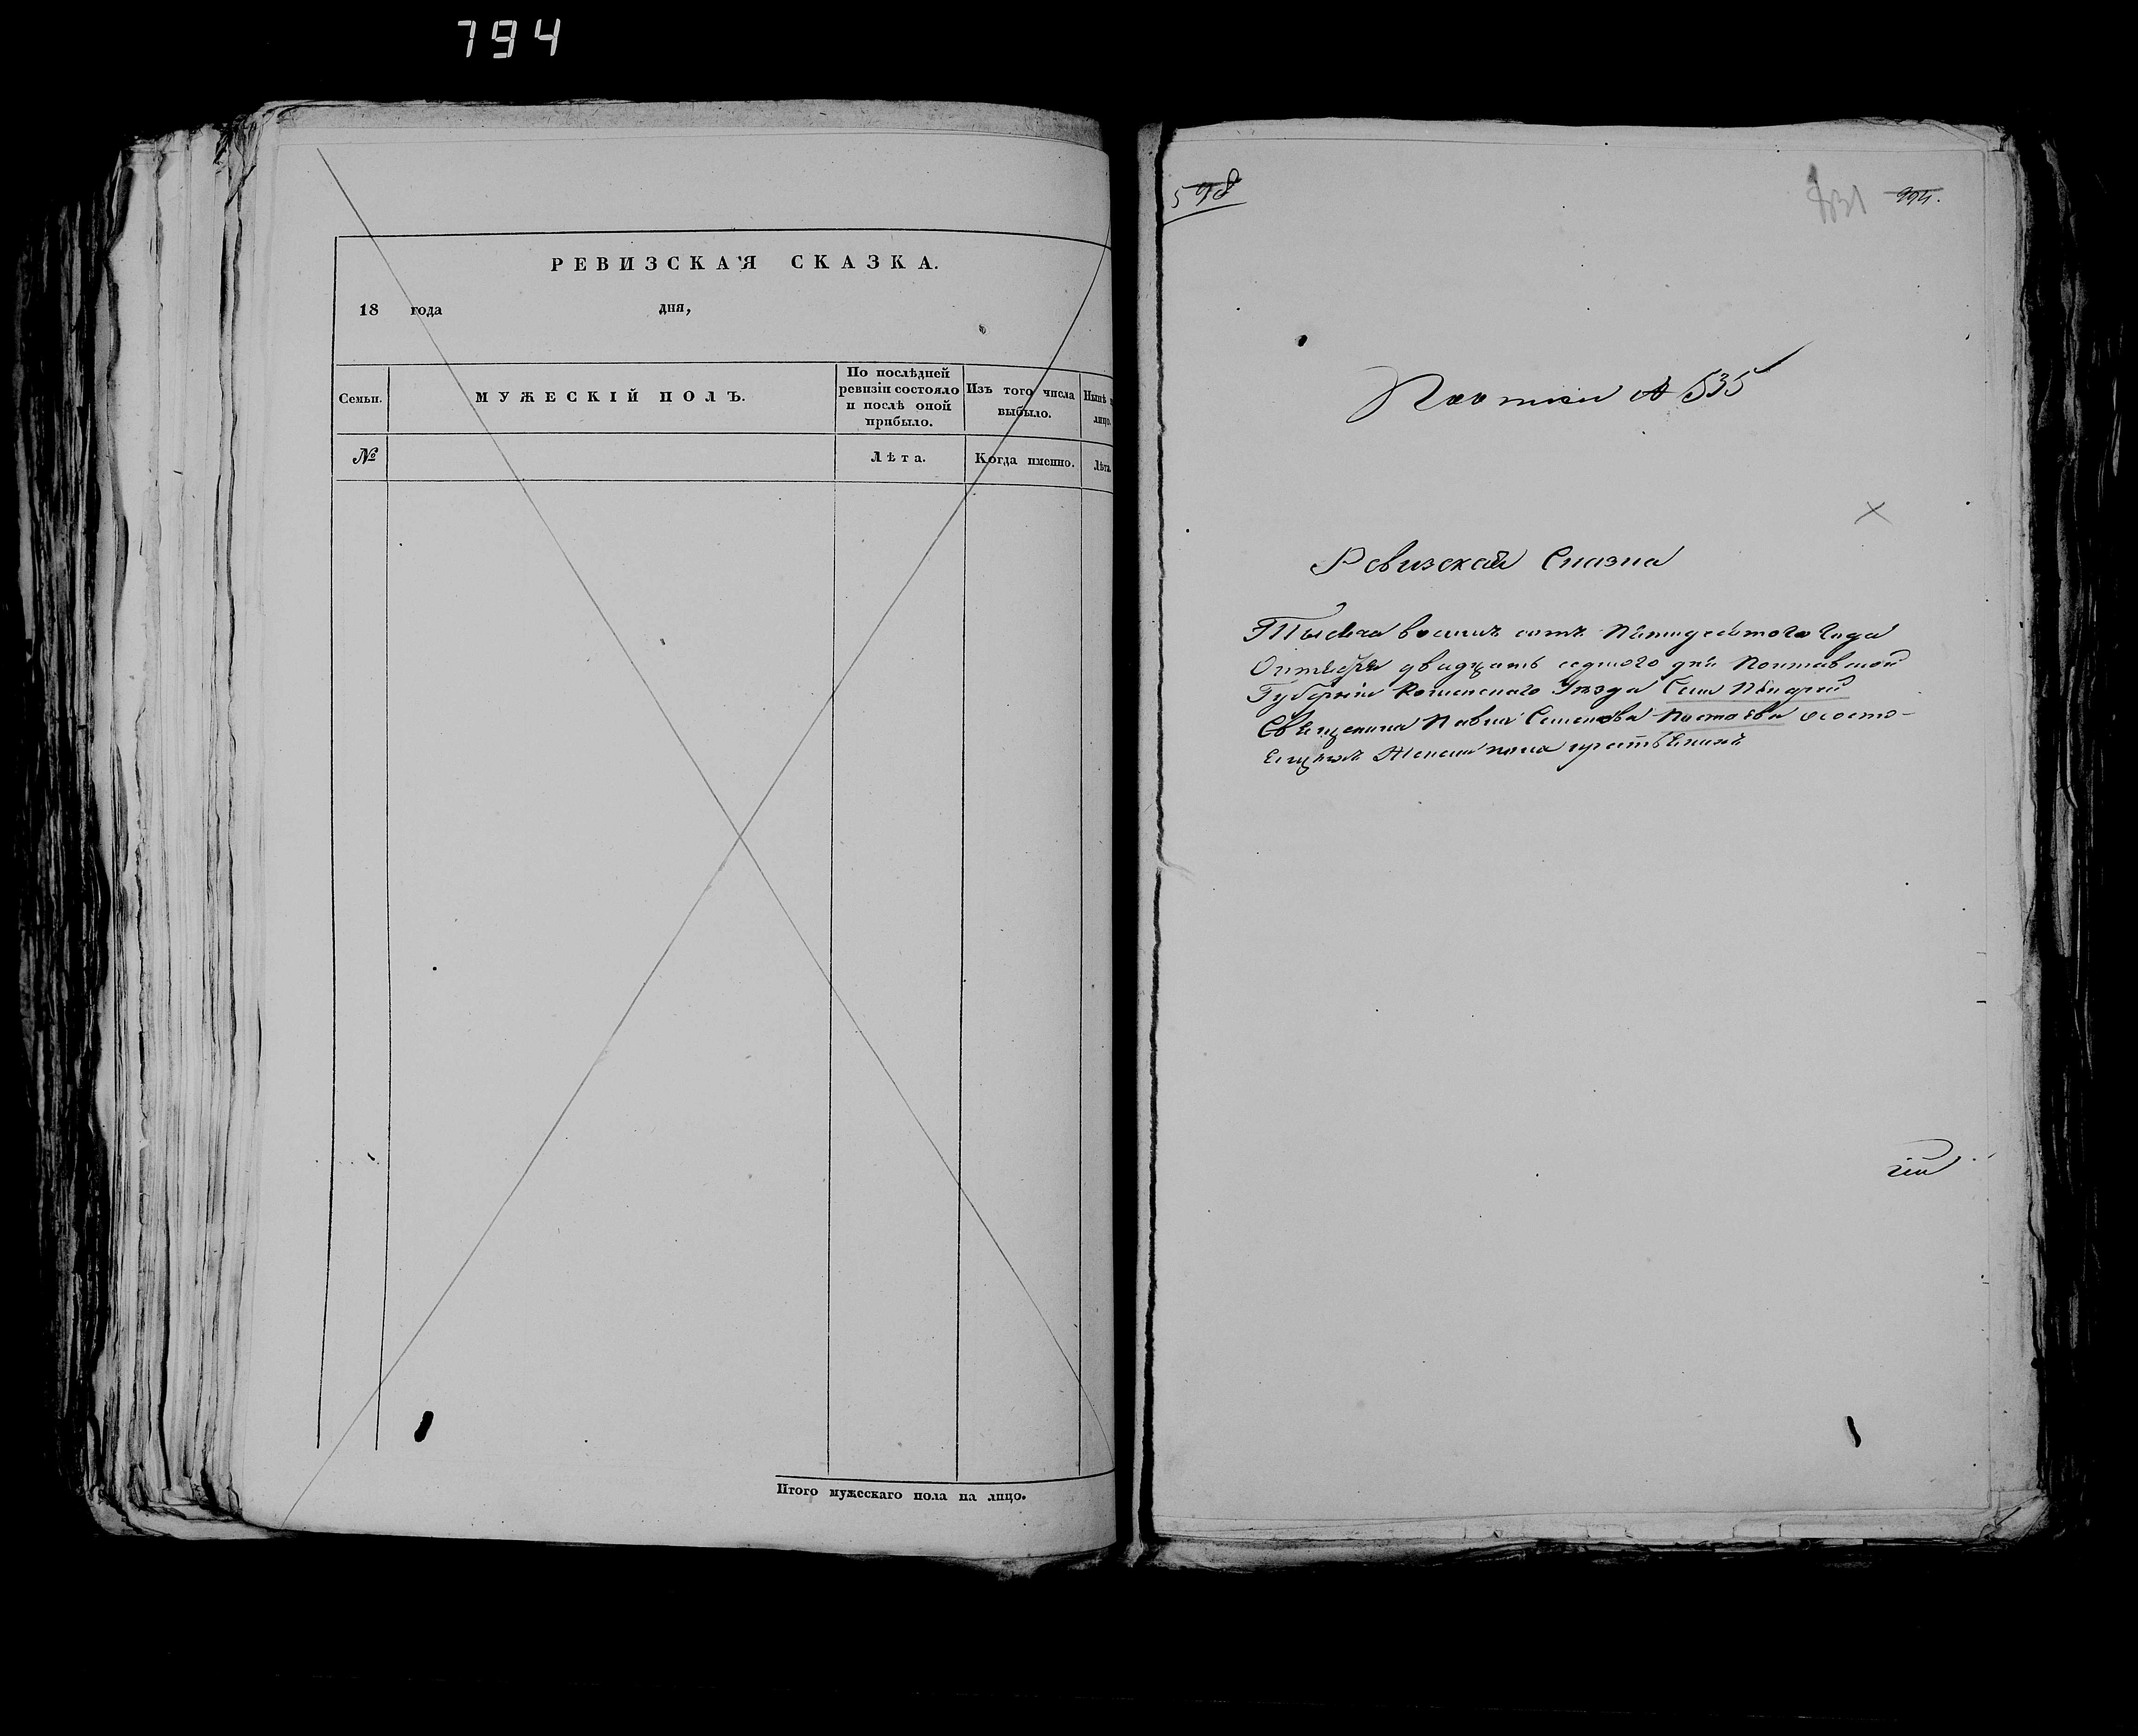 794
РЕВИЗСКАЯ СКАЗКА.
18 года дня,
Семьи.
МУЖЕСКІЙ ПОЛЪ.
По послѣдней ревизіи состояло и послѣ оной прибыло.
Изъ того числа выбыло.
Нынѣ
лицо.
№
Лѣта.
Когда именно.
Лѣта
Итого мужескаго пола на лицо.
598
994.
№ 535
Ревизская Сказка
Тысяча восемь сотъ Пятидесятого Года
Октября двадцать седмого дня Полтавской
Губерніи Роменского Уѣзда Села
Священика Павла Семенова о состо-
ящихъ Женска пола крестьянахъ